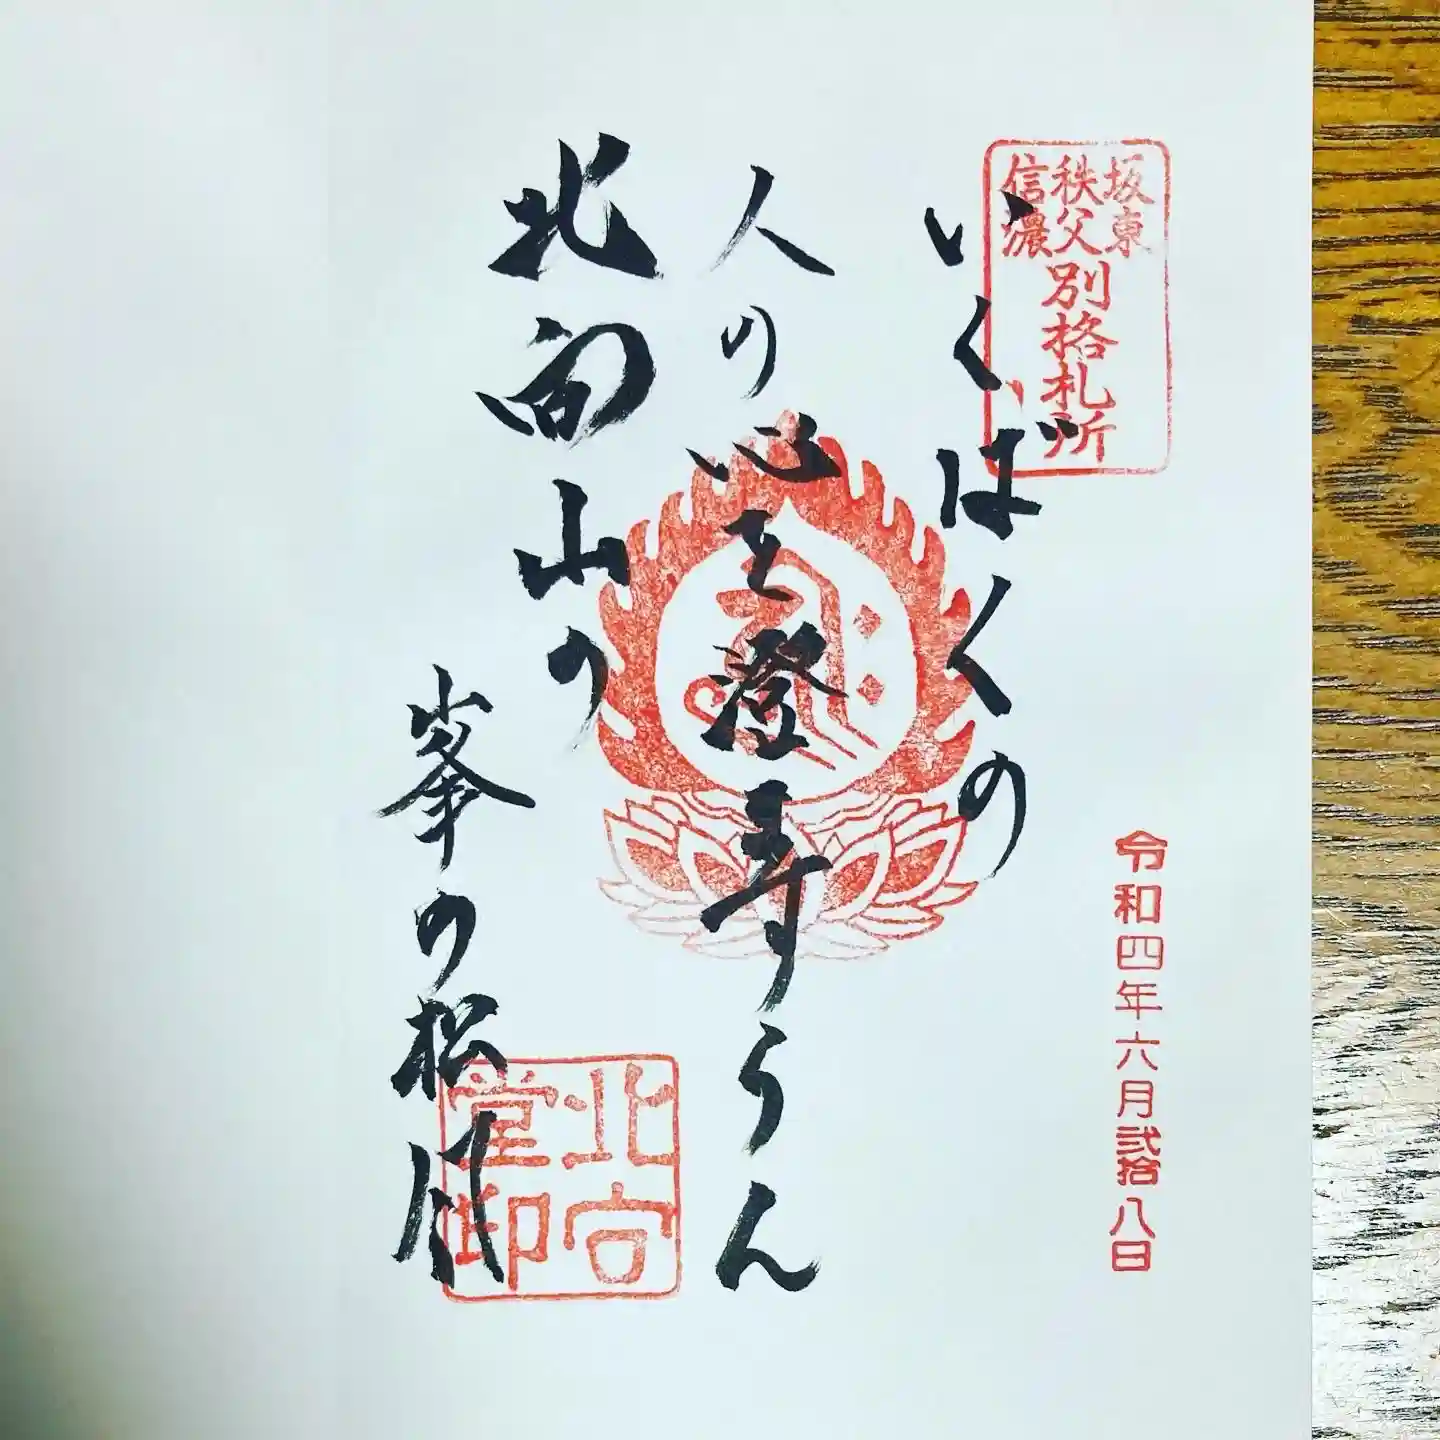 坂東
秩父
信濃
別格札所
令和四年六月弐拾八日
いくばくの
人の心を澄ますらん
北向山の
峯の松風
北向
堂印